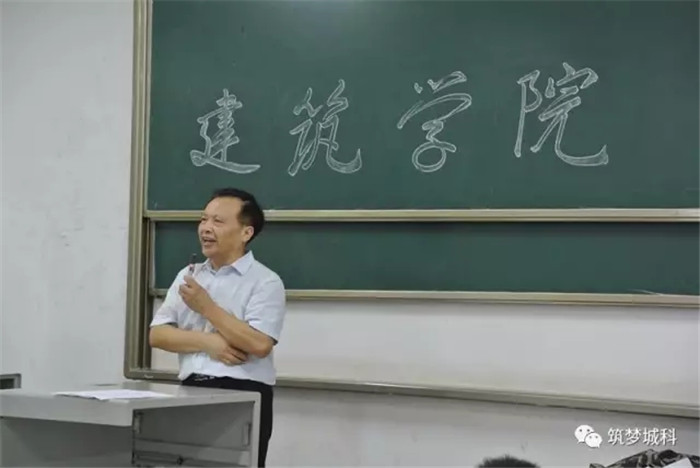 建筑学院
筑梦城科